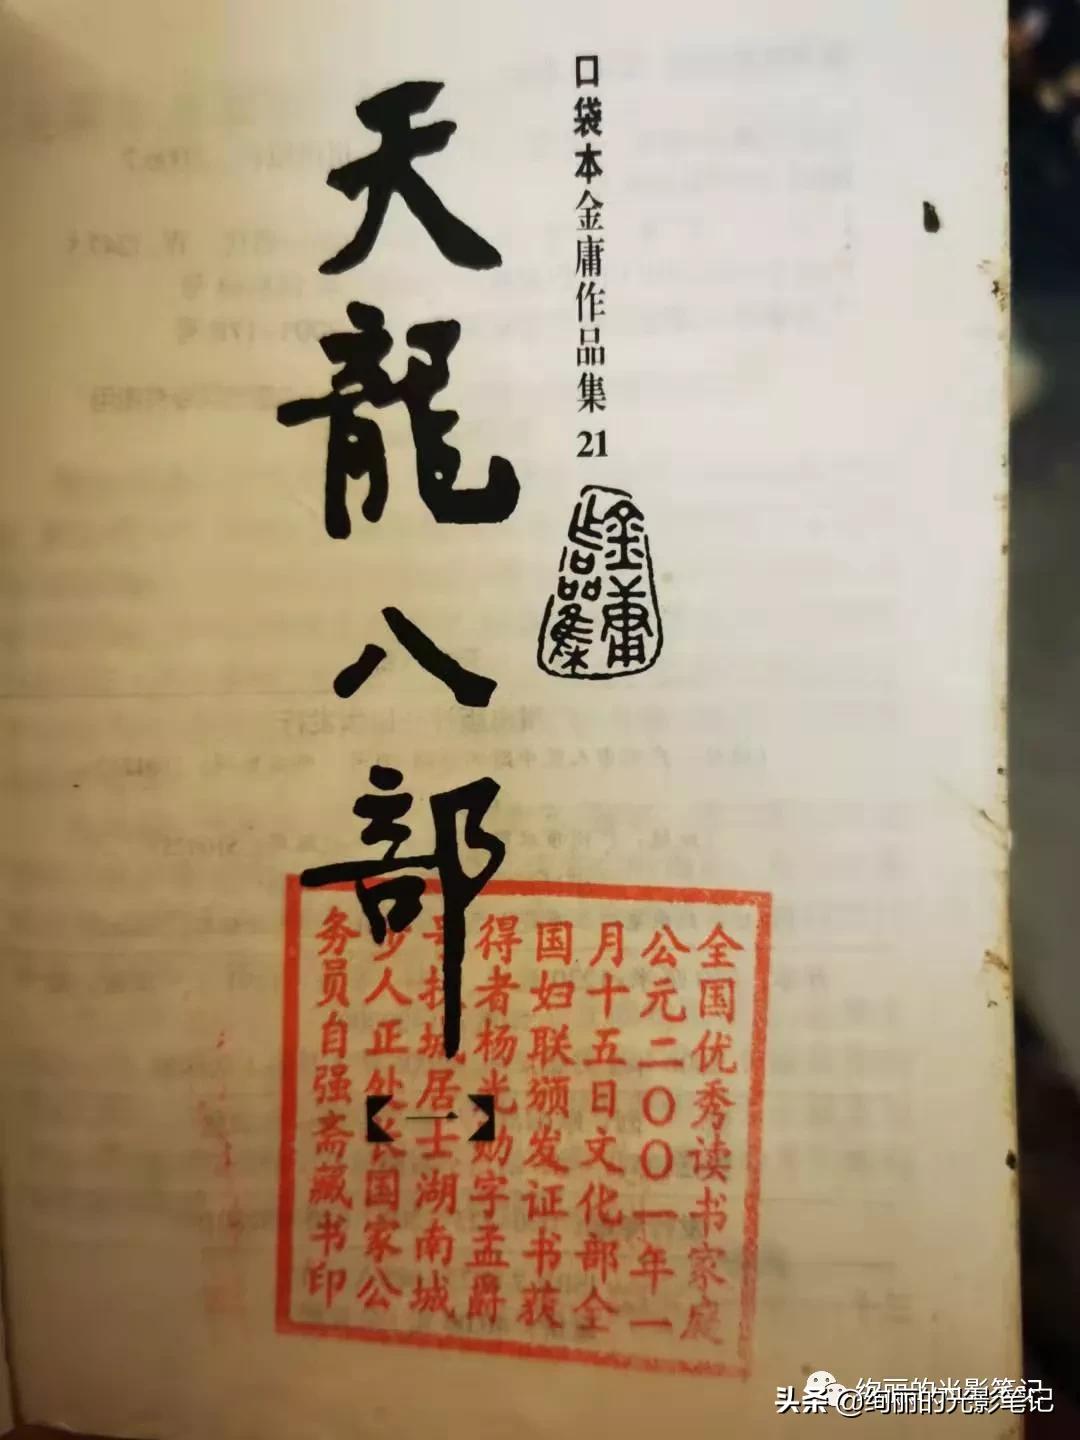 口袋本金庸作品集21
金庸
作品集
天龍八部
【一】
全国优秀读书家庭
公元二〇〇一年一
月十五日文化部全
国妇联颁发证书获
得者杨光勋字孟爵
号扶城居士湖南城
步人正处长国家公
务员自强斋藏书印
绚丽的光影笔记
头条 @绚丽的光影笔记